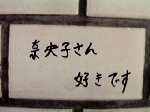 奈央子さん
好きです